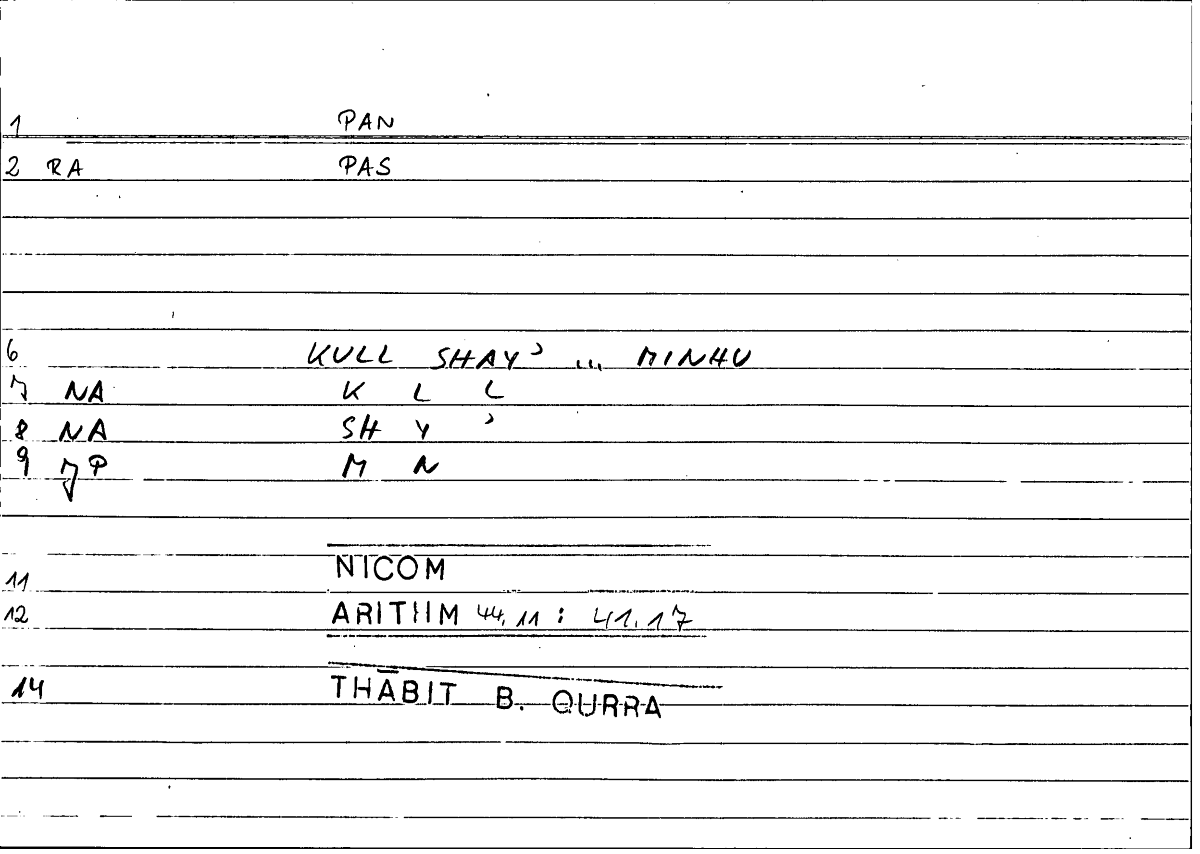 1 PAN
2 RA PAS
6 KULL SHAYʾ ... MINHU
7 NA K L L
8 NA SH Y ʾ
9 JP M N
11 NICOM
12 ARITHM 44,11 : 41.17
14 THĀBIT B. QURRA